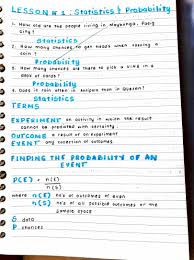 LESSON # 1 : Statistics & Probability
1. How old are the people living in Maybunga, Pasig
City?
Statistics
2. How many chances to get heads when tossing a
coin?
Probability
3. How many chances are there to pick a king in a
deck of cards?
Probability
4. Does it rain often in Manila than in Quezon?
Statistics
TERMS
EXPERIMENT an activity in which the result
cannot be predicted with certainty
OUTCOME a result of an experiment
EVENT any collection of outcomes
FINDING THE PROBABILITY OF AN
EVENT
P(E) = n(E)
n(S)
where n(E) = no. of outcomes of even
n(S) = no. of all possible outcomes or the
sample space
S data
P chances